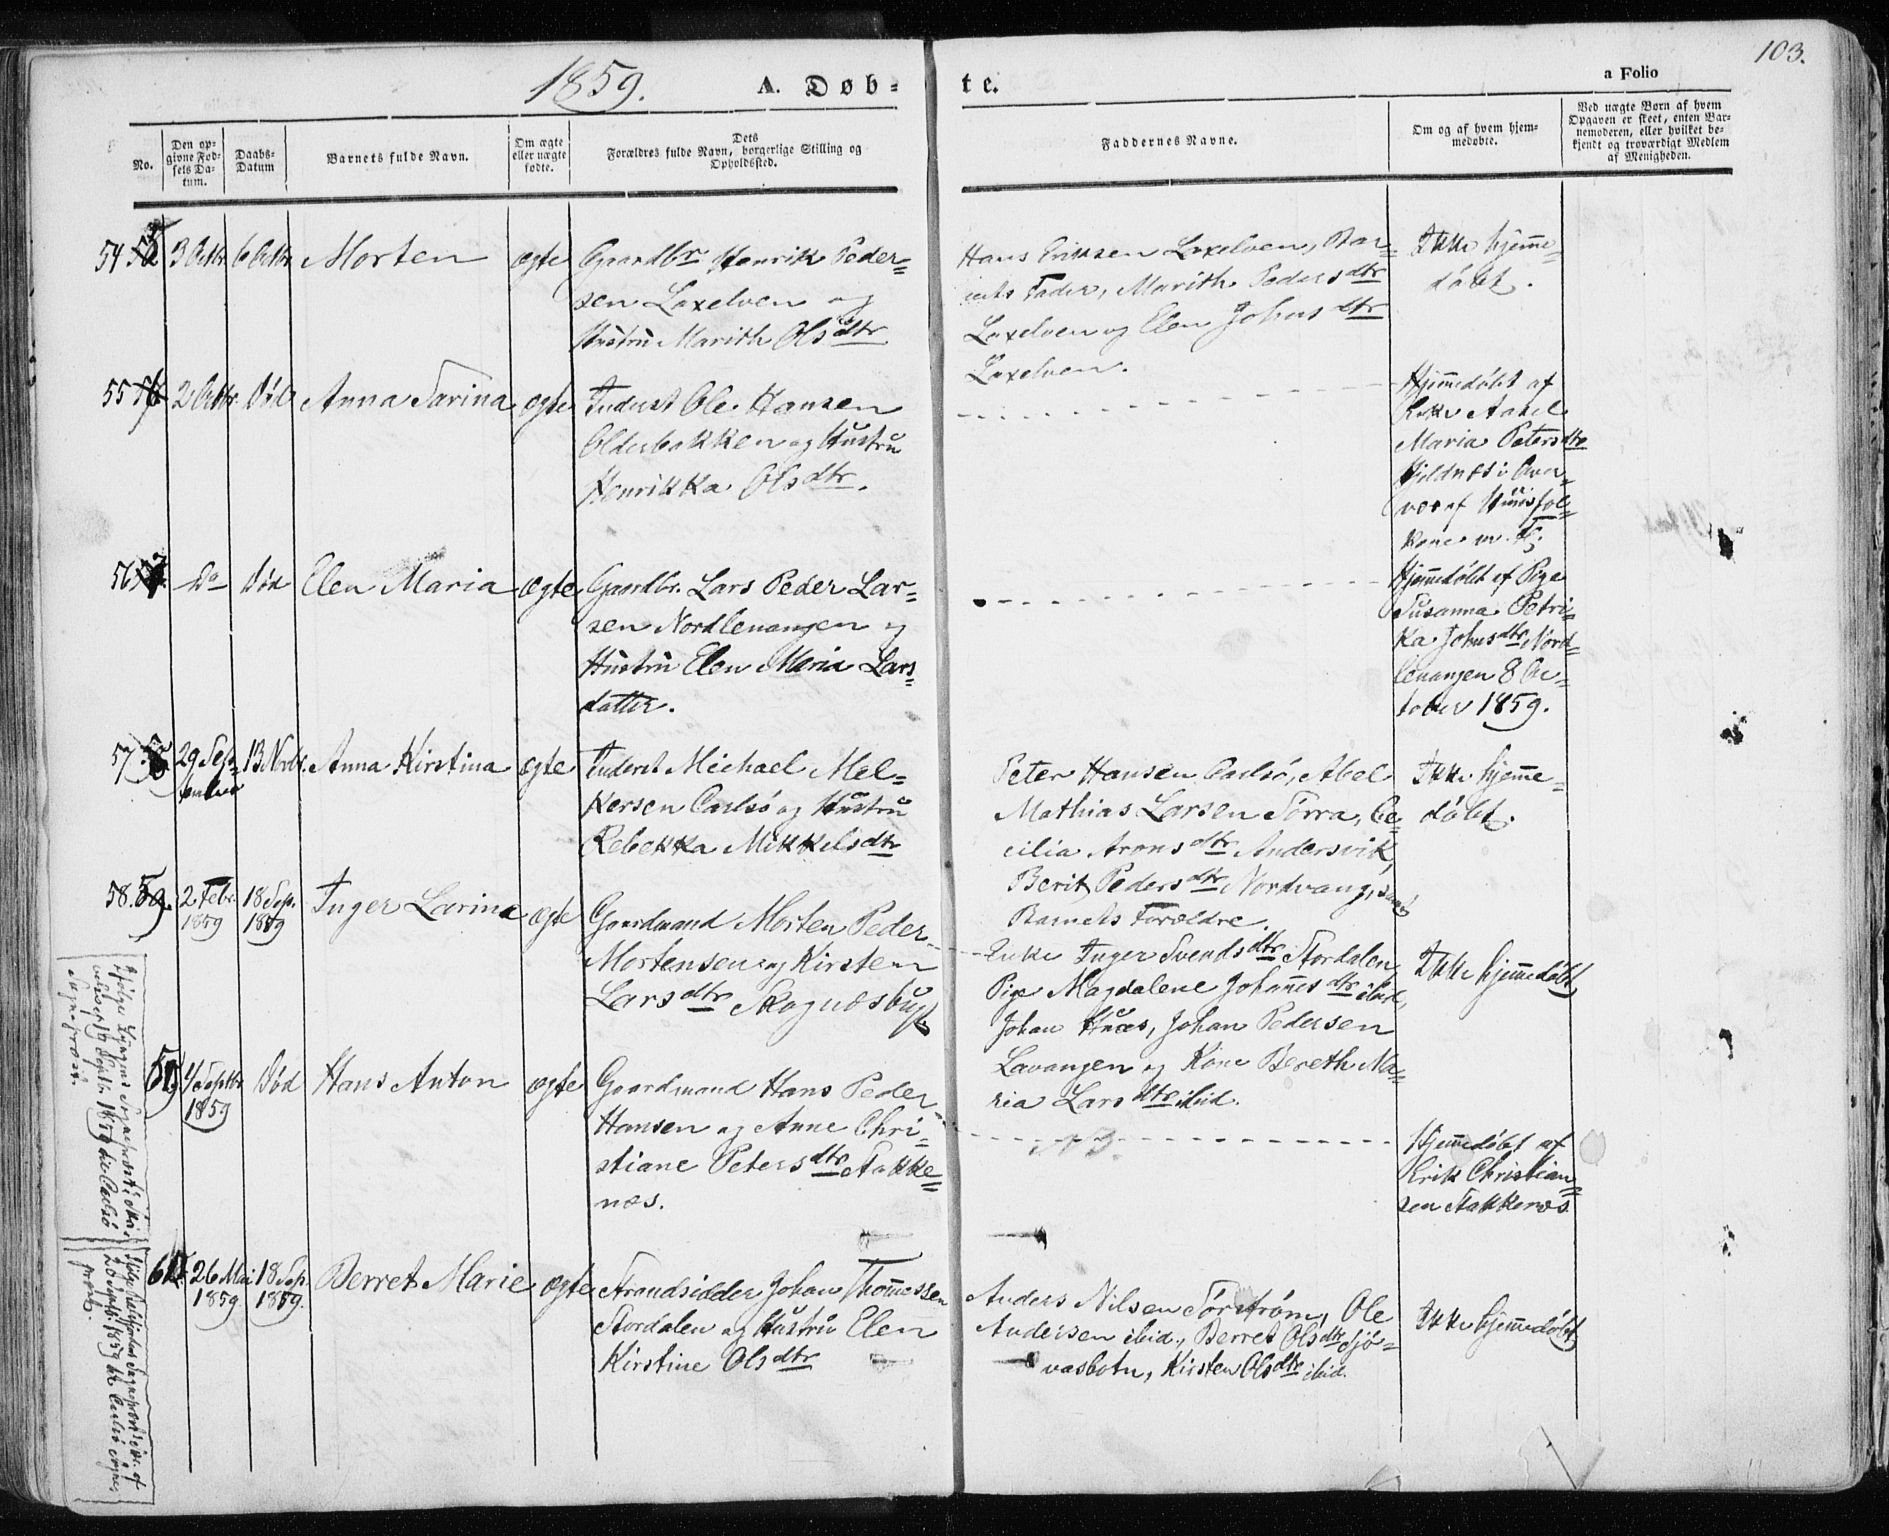 103.
1859.
A. Døb-
te.
a Folio
No.
Den op-
givne Fød-
sels Da-
tum.
Daabs-
Datum
Barnets fulde Navn.
Om ægte
eller uægte
fødte.
Dets
Forældres fulde Navn, borgerlige Stilling og
Opholdssted.
Faddernes Navne.
Om og af hvem hjem-
medøbte.
Ved uægte Børn af hvem
Opgaven er skeet, enten Bar-
nemoderen, eller hvilket be-
kjendt og troværdigt Medlem
af Menigheden.
54
3 Octbr
6 Octbr
Morten
ægte
Gaardbr. Henrik Peder-
sen Laxelven og
Hustru Marith Olsdtr
Hans Eriksen Laxelven, Bar-
nets Fader, Marith Pedersdtr
Laxelven og Elen Johnsdtr
Laxelven.
Ikke hjemme-
døbt.
55
2 Octbr
Død
Anna Sarina
ægte
Inderst Ole Hansen
Olderbakken og Hustru
Henrikka Olsdtr.
Hjemmedøbt af
Enke
Maria Petersdtr
i Over-
vær af Huusfol-
kene
56
Do
Død
Elen Maria
ægte
Gaardbr. Lars Peder Lar-
sen Nordlenangen og
Hustru Elen Maria Lars-
datter.
Hjemmedøbt af Pige
Susanna Petri-
ka Johnsdtr Nord-
lenangen 8 Oc-
tober 1859.
57
29 Sep-
tember
13 Novbr.
Anna Kirstina
ægte
Inderst Michael Mel-
kersen Carlsø og Hustru
Rebekka Mikkelsdtr
Peter Hansen Carlsø, Abel
Mathias Larsen Torra, Ce-
cilia Aronsdtr Andersvik,
Berit Pedersdtr Nordvang, samt
Barnets Forældre.
Ikke hjemme-
døbt.
58.
2 Febr.
1859
18 Sep.
1859
Inger Larina
ægte
Gaardmand Morten Peder
Mortensen og Kirsten
Larsdtr Skognæsbugt
Enke Inger Svendsdtr Stordalen,
Pige Magdalene Johannesdtr ibid,
Johan Johan Pedersen
Lavangen og Kone Bereth Ma-
ria Larsdtr ibid.
Ikke hjemmedøbt
59
Septbr
1859
Død
Hans Anton
ægte
Gaardmand Hans Peder
Hansen og Anne Chri-
stiane Petersdtr Stakke-
næs.
Hjemmedøbt af
Erik Christian-
sen Stakkenæs.
60
26 Mai
1859
18 Sep.
1859.
Berret Marie
ægte
Strandsidder Johan Thomessen
Stordalen og Hustru Elen
Kirstine Olsdtr
Anders Nilsen Ole
Andersen ibid., Berret Olsdtr Sjø-
vasbotn, Kirsten Olsdtr ibid.
Ikke hjemmedøbt
Ifølge Lyngens Sognepræsts
1859 til Carlsø
Sognepræst.
af
20 Septb. 1859 til Carlsø Sogne-
præst.